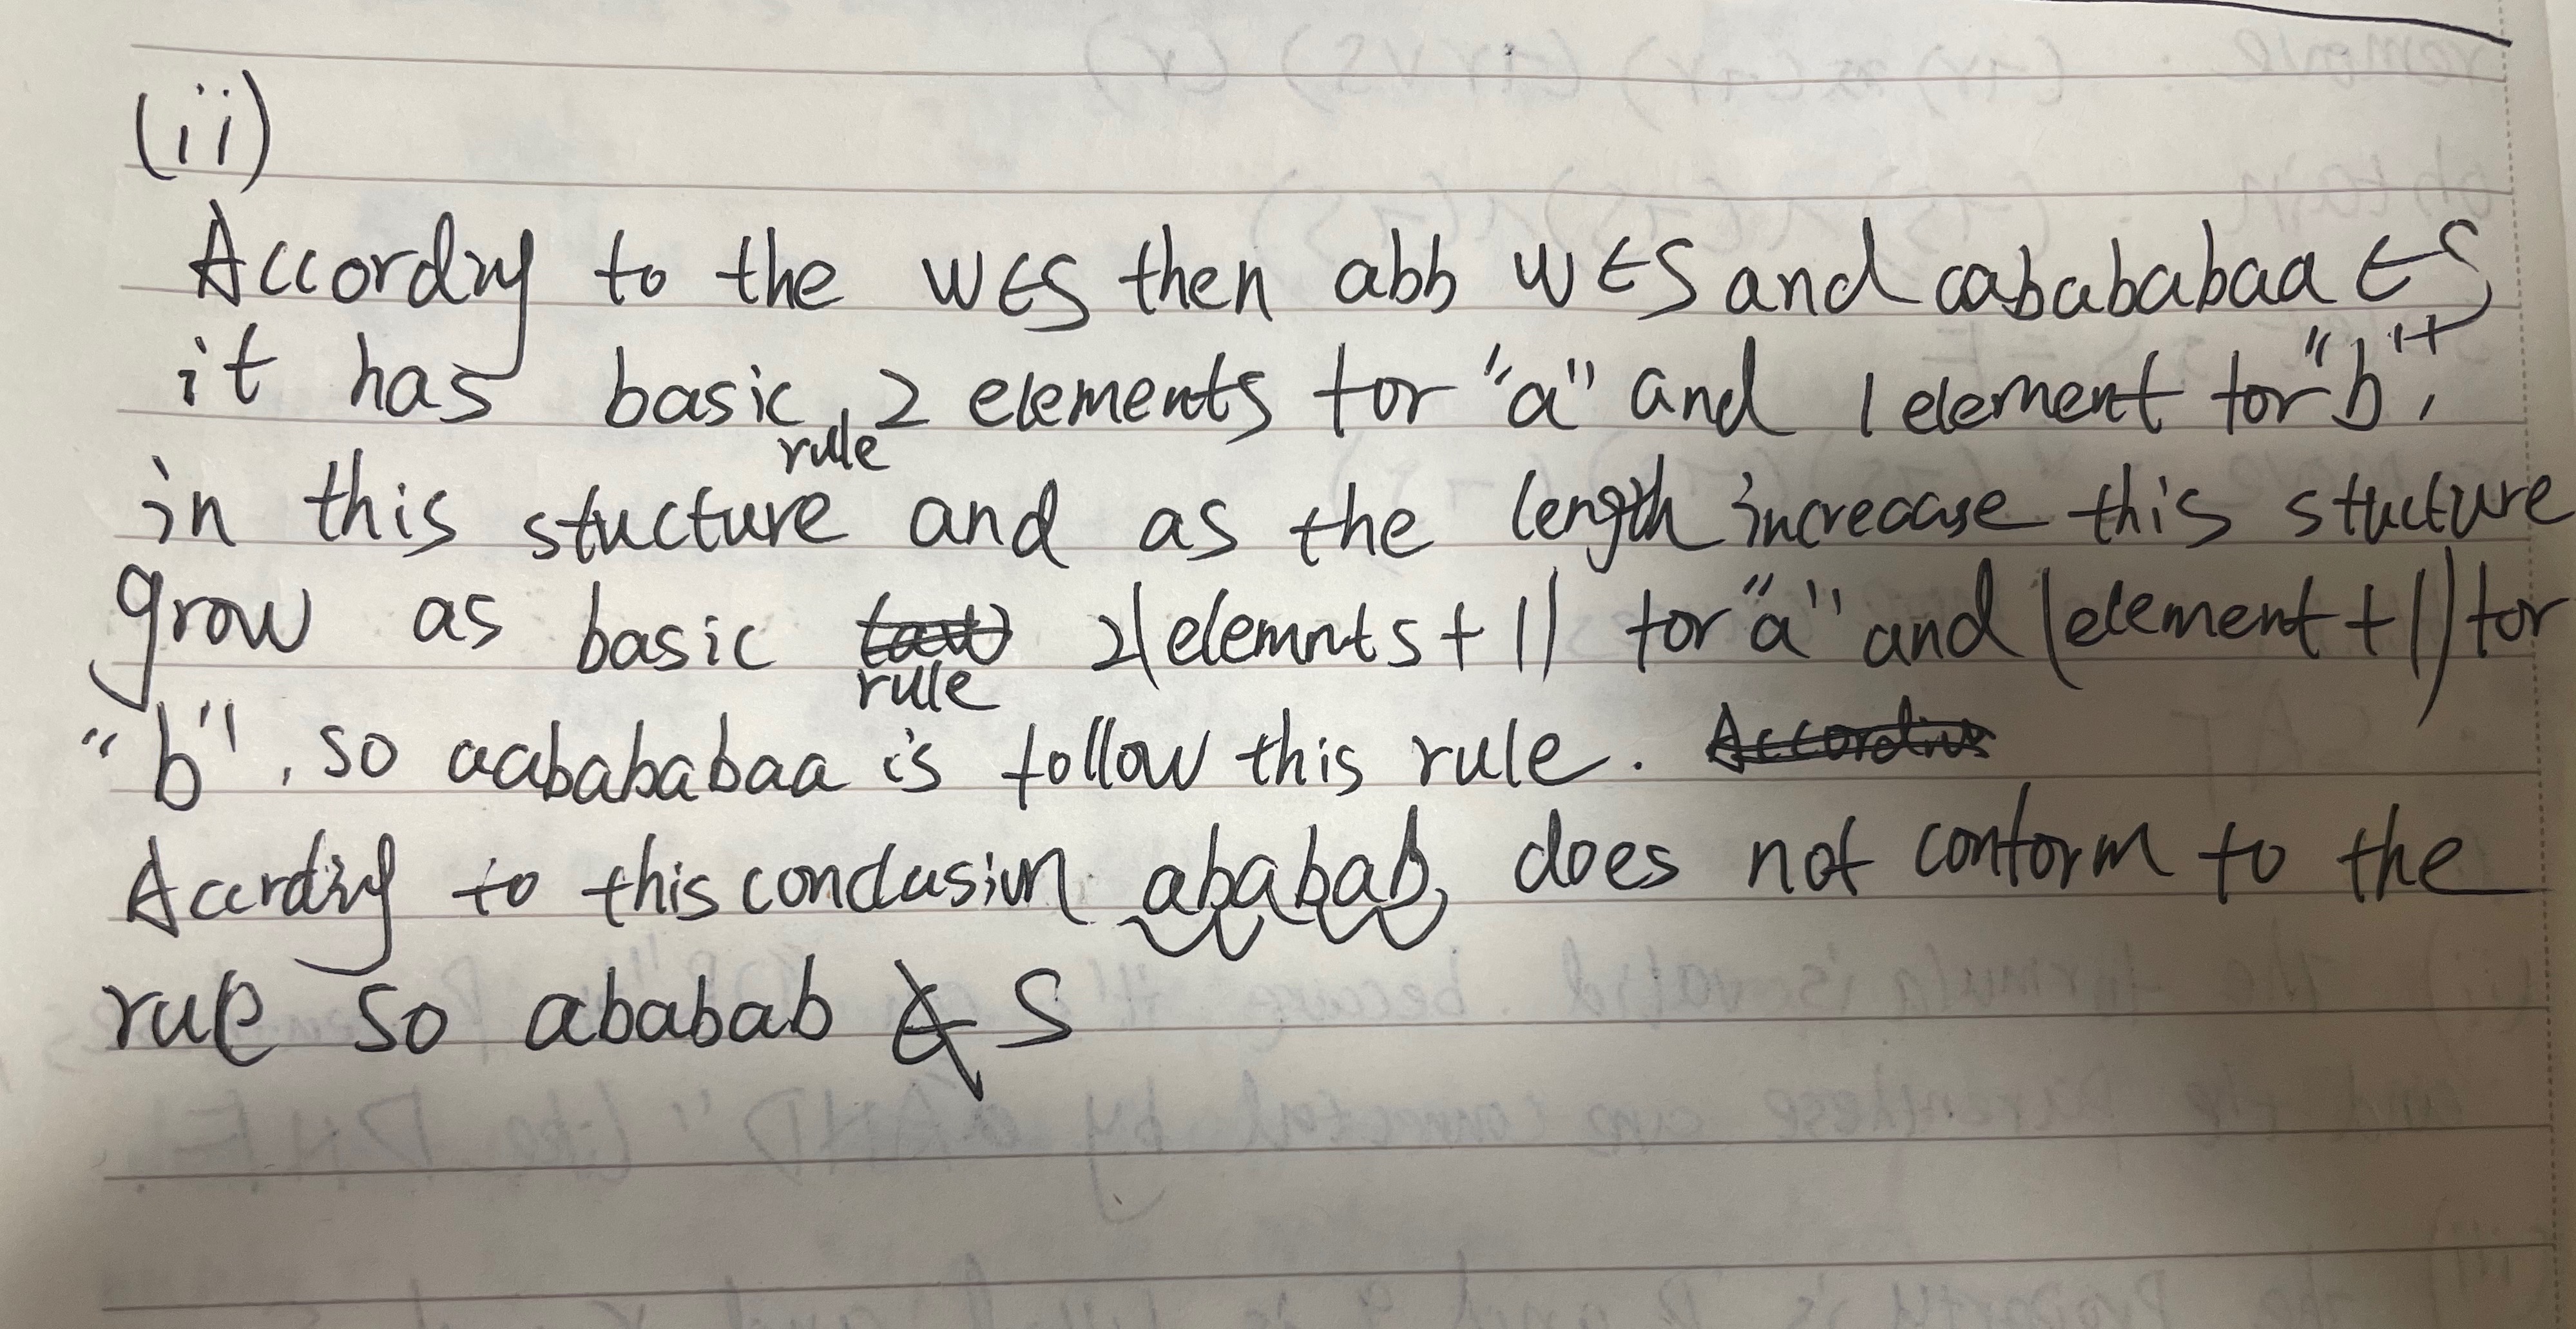 (ii)
According to the w∈S then abb w∈S and aababababaa ∈ S,
it has basic rule, 2 elements for "a" and 1 element for "b", it
in this stucture and as the length increase this stucture
grow as basic rule 2(elemnts+1) for "a" and (element+1) for
"b", so aababababaa is follow this rule.
Accrding to this conclusion ababab, does not conform to the
rule so ababab ∉ S